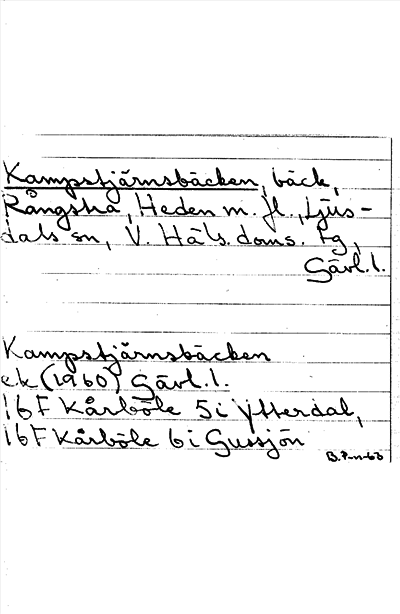 Kampstjärnsbäcken, bäck,
Rångstra, Heden m. fl., Ljus-
dals sn, V. Häls. doms. tg,
Gävl. l.
Kampstjärnsbäcken
e.k (1960) Gävl. l.
16F Kårböle 5i Ytterdal,
16F Kårböle 6i Gussjön